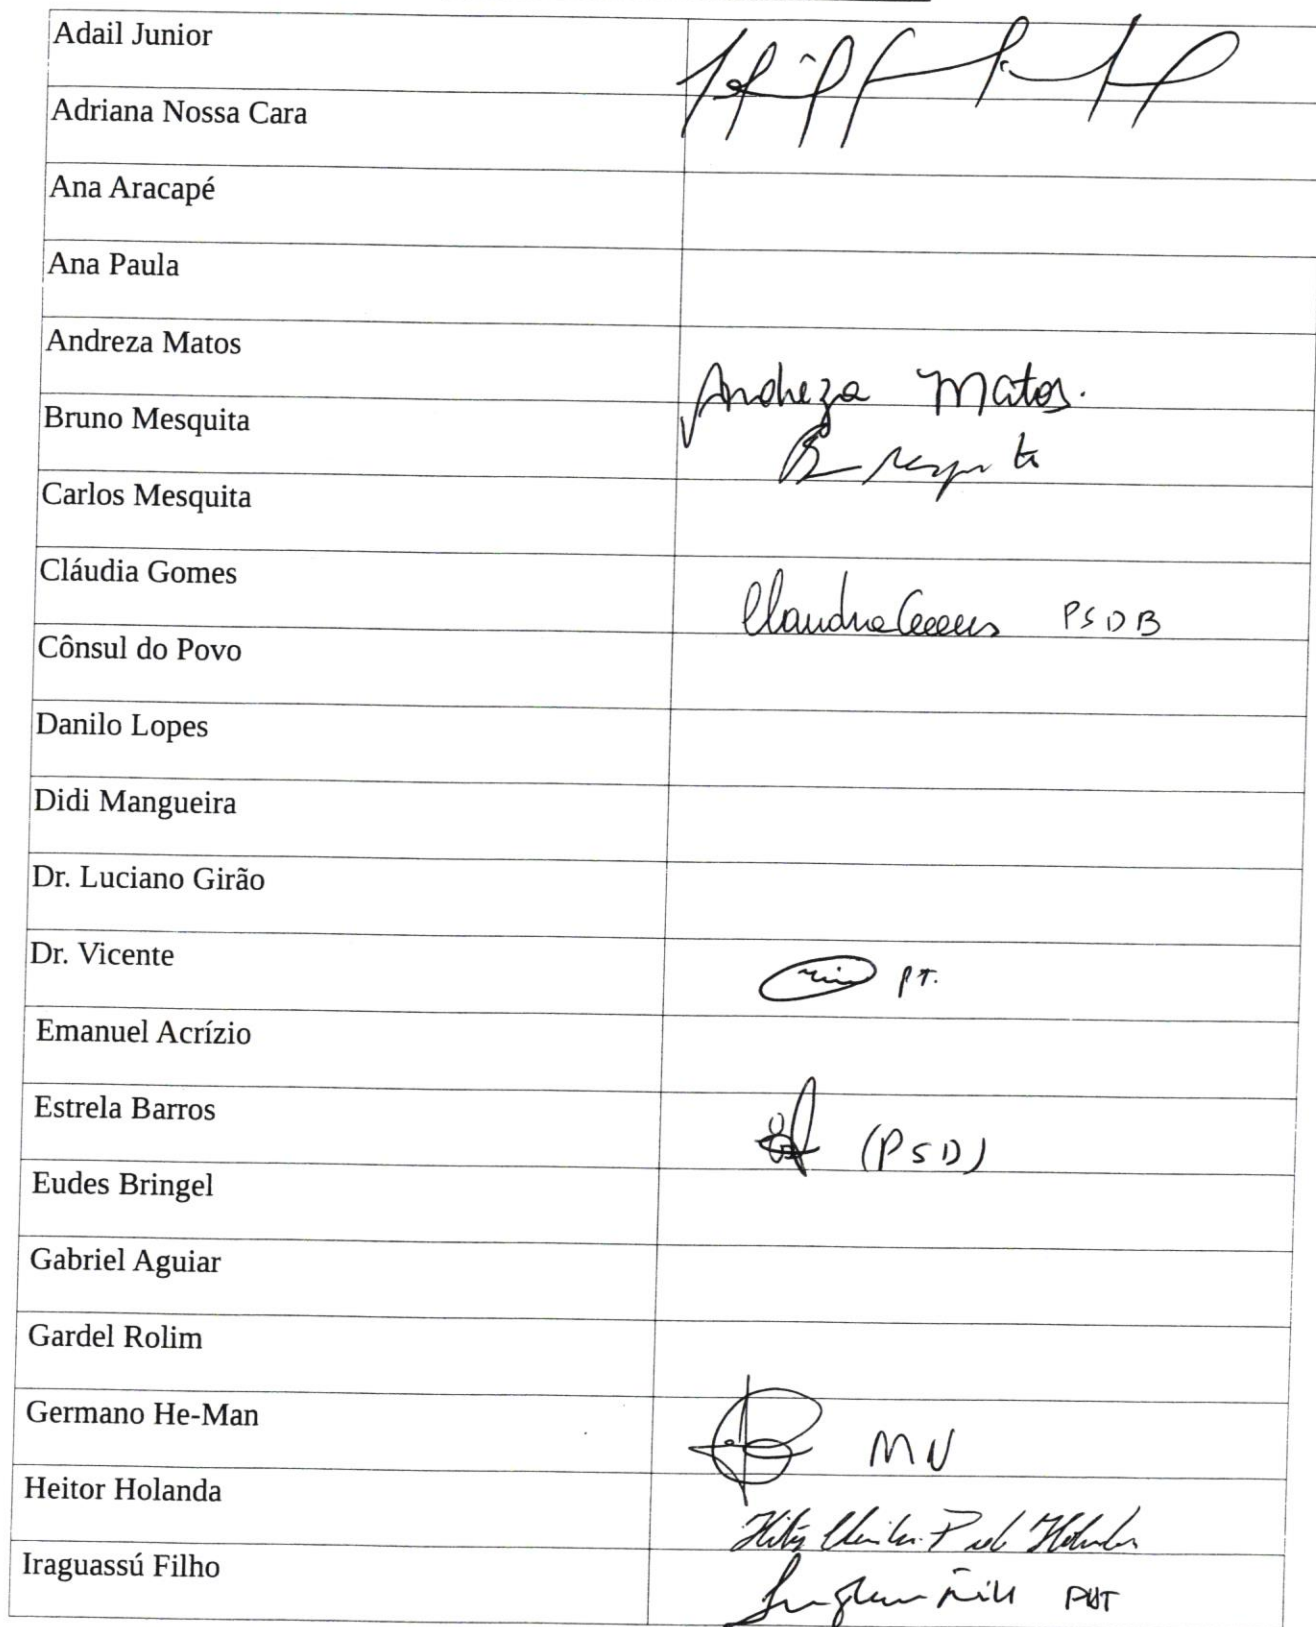 Adail Junior
Adriana Nossa Cara
Ana Aracapé
Ana Paula
Andreza Matos
Andreza Matos.
Bruno Mesquita
Carlos Mesquita
Cláudia Gomes
PSDB
Cônsul do Povo
Danilo Lopes
Didi Mangueira
Dr. Luciano Girão
Dr. Vicente
PT.
Emanuel Acrízio
Estrela Barros
(PSD)
Eudes Bringel
Gabriel Aguiar
Gardel Rolim
Germano He-Man
MN
Heitor Holanda
Iraguassú Filho
PDT